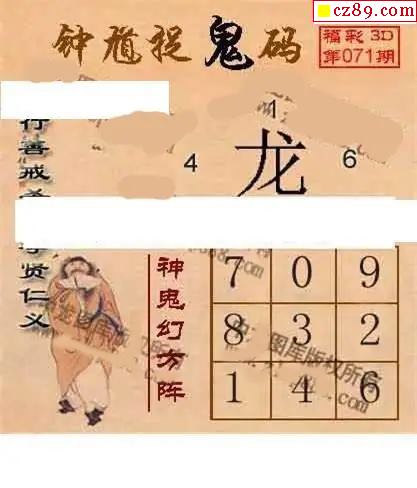 cz89.com
钟馗捉鬼码
福彩3D
第071期
行善戒
贤仁义
1
4 龙 6
神鬼幻方阵
7 0 9
8 3 2
1 4 6
图库版权所